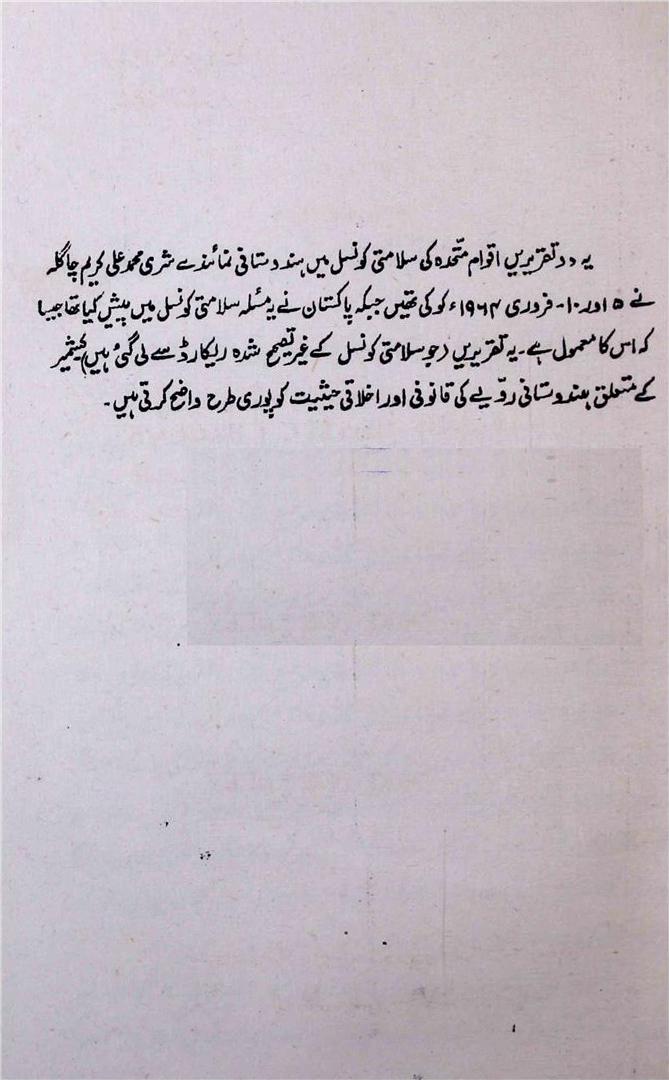 یہ دو تقریریں اقوام متّحدہ کی سلامتی کونسل میں ہندوستانی نمائندے شری محمد علی کریم چاگلہ
نے ۵ اور ۱۰۔ فروری ۱۹۶۴ء کو کی تھیں جبکہ پاکستان نے یہ مسئلہ سلامتی کونسل میں پیش کیا تھا جیسا
کہ اس کا معمول ہے۔ یہ تقریریں (جو سلامتی کونسل کے غیر تصحیح شدہ ریکارڈ سے لی گئی ہیں) کشمیر
کے متعلق ہندوستانی روّیے کی قانونی اور اخلاقی حیثیت کو پوری طرح واضح کرتی ہیں۔